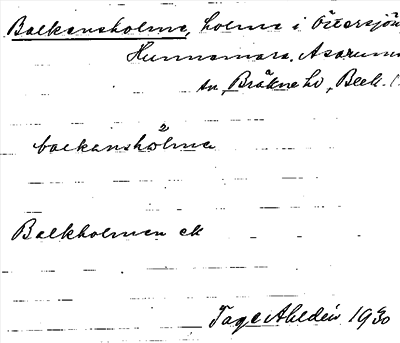 Balkansholme, holme i Östersjön
Hunnamara, Asarums
sn, Bräkne hd, Blek.
balkanshòlmen
Balkholmen ek
Tage Ahldén 1930